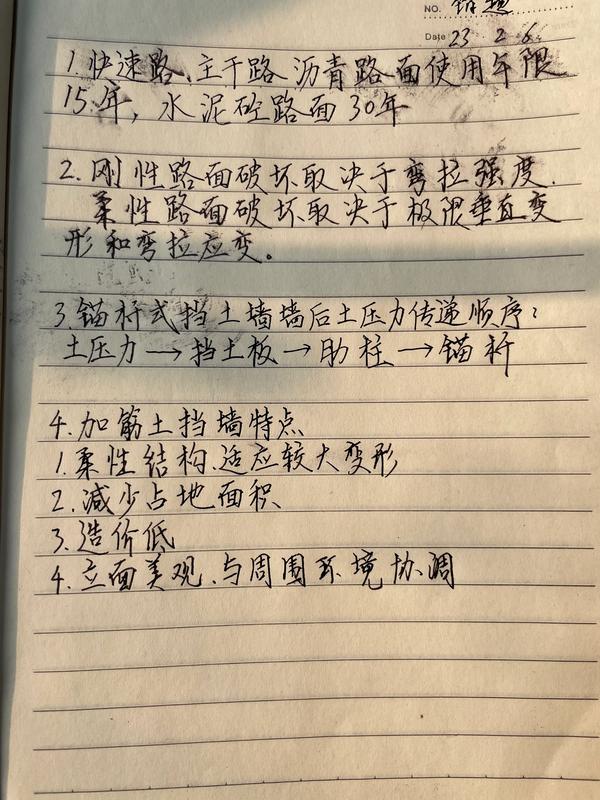 NO. 错题
Date 23 2 6
1.快速路、主干路沥青路面使用年限
15年,水泥砼路面30年
2.刚性路面破坏取决于弯拉强度.
柔性路面破坏取决于极限垂直变
形和弯拉应变。
3.锚杆式挡土墙墙后土压力传递顺序:
土压力→挡土板→肋柱→锚杆
4.加筋土挡墙特点
1.柔性结构、适应较大变形
2.减少占地面积
3.造价低
4.立面美观、与周围环境协调